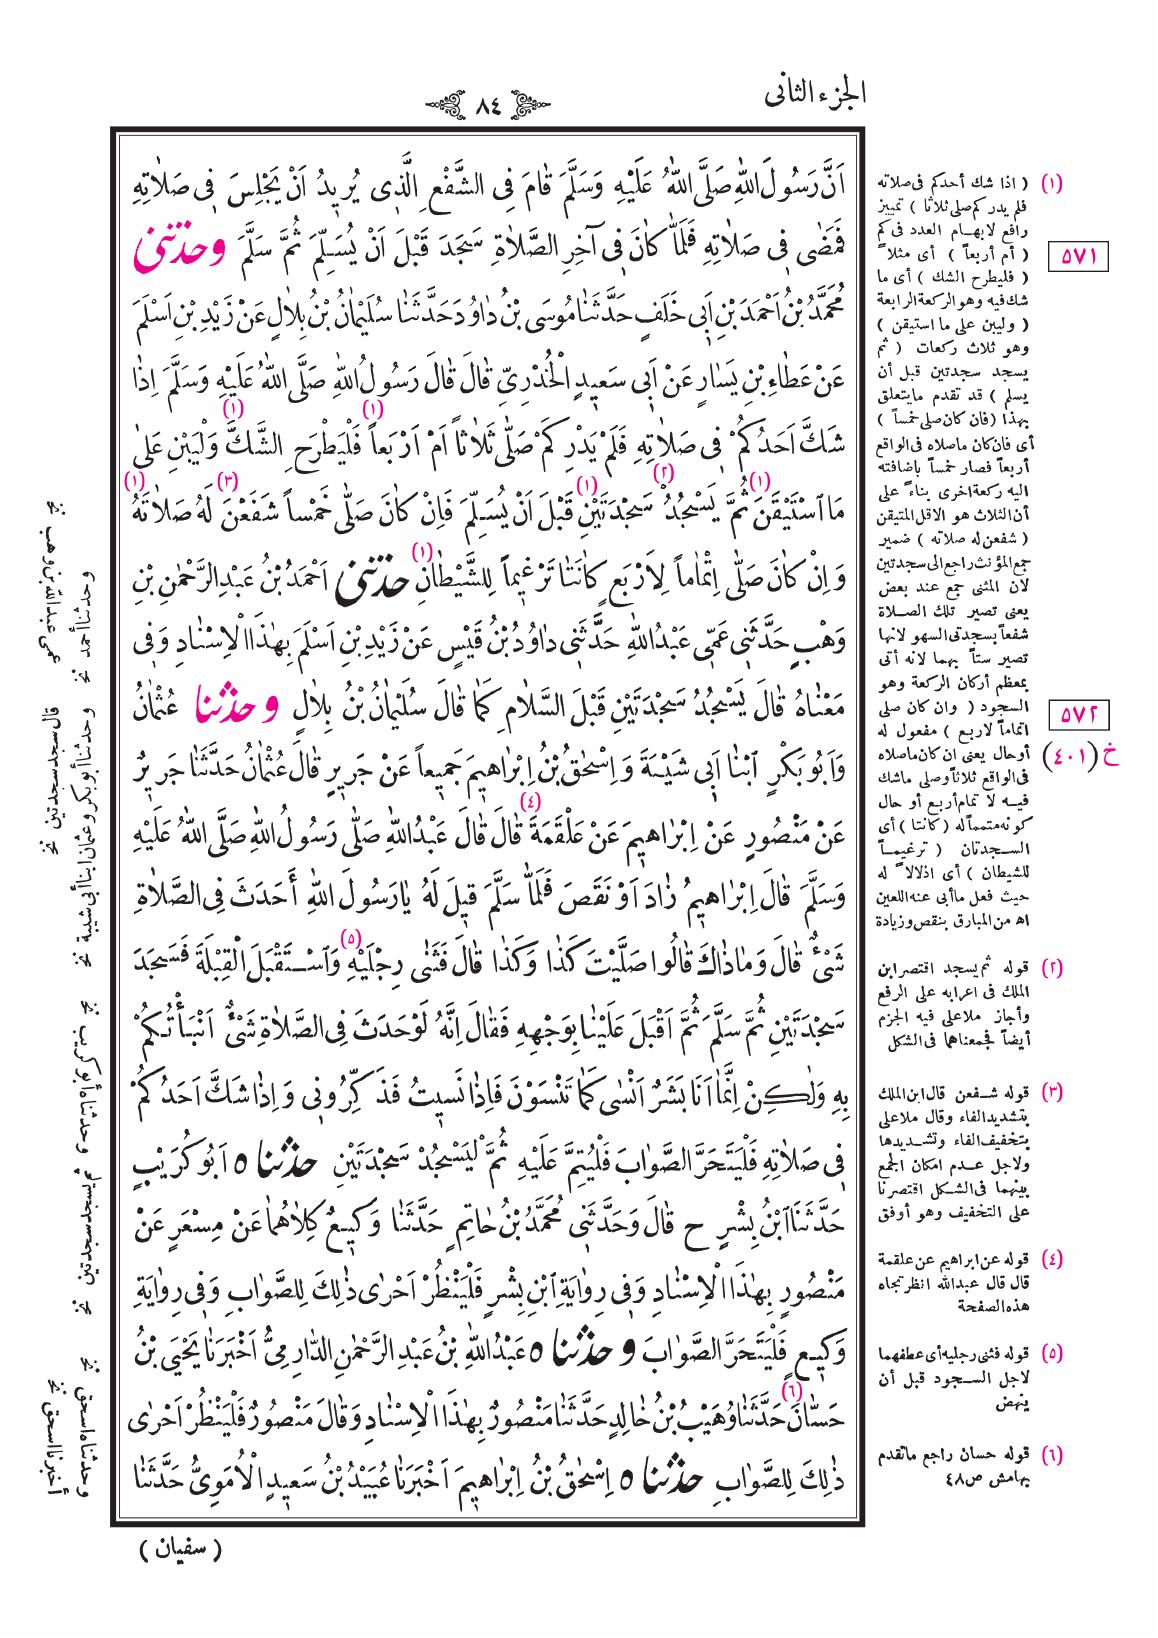 الجزء الثانى
٨٤
اَنَّ رَسُولَ اللهِ صَلَّى اللهُ عَلَيْهِ وَسَلَّمَ قَامَ فِى الشَّفْعِ الَّذِى يُرِيدُ اَنْ يَجْلِسَ فِى صَلَاتِهِ
فَمَضٰى فِى صَلَاتِهِ فَلَمَّا كَانَ فِى آخِرِ الصَّلَاةِ سَجَدَ قَبْلَ اَنْ يُسَلِّمَ ثُمَّ سَلَّمَ وحدثنى
مُحَمَّدُ بْنُ اَحْمَدَ بْنِ اَبِى خَلَفٍ حَدَّثَنَا مُوسَى بْنُ دَاوُدَ حَدَّثَنَا سُلَيْمَانُ بْنُ بِلَالٍ عَنْ زَيْدِ بْنِ اَسْلَمَ
عَنْ عَطَاءِ بْنِ يَسَارٍ عَنْ اَبِى سَعِيدٍ الْخُدْرِىِّ قَالَ قَالَ رَسُولُ اللهِ صَلَّى اللهُ عَلَيْهِ وَسَلَّمَ اِذَا
شَكَّ اَحَدُكُمْ فِى صَلَاتِهِ فَلَمْ يَدْرِ كَمْ صَلَّى ثَلَاثاً اَمْ اَرْبَعاً (١) فَلْيَطْرَحِ الشَّكَّ (١) وَلْيَبْنِ عَلٰى
مَا اسْتَيْقَنَ (١) ثُمَّ يَسْجُدُ (٢) سَجْدَتَيْنِ (١) قَبْلَ اَنْ يُسَلِّمَ فَاِنْ كَانَ صَلَّى خَمْساً شَفَعْنَ (٣) لَهُ صَلَاتَهُ (١)
وَاِنْ كَانَ صَلَّى اِتْمَاماً لِاَرْبَعٍ كَانَتَا تَرْغِيماً لِلشَّيْطَانِ (١) حدثنى اَحْمَدُ بْنُ عَبْدِ الرَّحْمٰنِ بْنِ
وَهْبٍ حَدَّثَنِى عَمِّى عَبْدُ اللهِ حَدَّثَنِى دَاوُدُ بْنُ قَيْسٍ عَنْ زَيْدِ بْنِ اَسْلَمَ بِهٰذَا الْاِسْنَادِ وَفِى
مَعْنَاهُ قَالَ يَسْجُدُ سَجْدَتَيْنِ قَبْلَ السَّلَامِ كَمَا قَالَ سُلَيْمَانُ بْنُ بِلَالٍ وحدثنا عُثْمَانُ
وَاَبُو بَكْرٍ ابْنَا اَبِى شَيْبَةَ وَاِسْحٰقُ بْنُ اِبْرَاهِيمَ جَمِيعاً عَنْ جَرِيرٍ قَالَ عُثْمَانُ حَدَّثَنَا جَرِيرٌ
عَنْ مَنْصُورٍ عَنْ اِبْرَاهِيمَ عَنْ عَلْقَمَةَ (٤) قَالَ قَالَ عَبْدُ اللهِ صَلَّى رَسُولُ اللهِ صَلَّى اللهُ عَلَيْهِ
وَسَلَّمَ قَالَ اِبْرَاهِيمُ زَادَ اَوْ نَقَصَ فَلَمَّا سَلَّمَ قِيلَ لَهُ يَا رَسُولَ اللهِ أَحَدَثَ فِى الصَّلَاةِ
شَىْءٌ قَالَ وَمَا ذَاكَ قَالُوا صَلَّيْتَ كَذَا وَكَذَا قَالَ فَثَنٰى رِجْلَيْهِ (٥) وَاسْتَقْبَلَ الْقِبْلَةَ فَسَجَدَ
سَجْدَتَيْنِ ثُمَّ سَلَّمَ ثُمَّ اَقْبَلَ عَلَيْنَا بِوَجْهِهِ فَقَالَ اِنَّهُ لَوْ حَدَثَ فِى الصَّلَاةِ شَىْءٌ اَنْبَأْتُكُمْ
بِهِ وَلٰكِنْ اِنَّمَا اَنَا بَشَرٌ اَنْسٰى كَمَا تَنْسَوْنَ فَاِذَا نَسِيتُ فَذَكِّرُونِى وَاِذَا شَكَّ اَحَدُكُمْ
فِى صَلَاتِهِ فَلْيَتَحَرَّ الصَّوَابَ فَلْيُتِمَّ عَلَيْهِ ثُمَّ لْيَسْجُدْ سَجْدَتَيْنِ حدثنا ٥ اَبُو كُرَيْبٍ
حَدَّثَنَا ابْنُ بِشْرٍ ح قَالَ وَحَدَّثَنِى مُحَمَّدُ بْنُ حَاتِمٍ حَدَّثَنَا وَكِيعٌ كِلَاهُمَا عَنْ مِسْعَرٍ عَنْ
مَنْصُورٍ بِهٰذَا الْاِسْنَادِ وَفِى رِوَايَةِ ابْنِ بِشْرٍ فَلْيَنْظُرْ اَحْرٰى ذٰلِكَ لِلصَّوَابِ وَفِى رِوَايَةِ
وَكِيعٍ فَلْيَتَحَرَّ الصَّوَابَ وحدثنا ٥ عَبْدُ اللهِ بْنُ عَبْدِ الرَّحْمٰنِ الدَّارِمِىُّ اَخْبَرَنَا يَحْيَى بْنُ
حَسَّانَ (٦) حَدَّثَنَا وُهَيْبُ بْنُ خَالِدٍ حَدَّثَنَا مَنْصُورٌ بِهٰذَا الْاِسْنَادِ وَقَالَ مَنْصُورٌ فَلْيَنْظُرْ اَحْرٰى
ذٰلِكَ لِلصَّوَابِ حدثنا ٥ اِسْحٰقُ بْنُ اِبْرَاهِيمَ اَخْبَرَنَا عُبَيْدُ بْنُ سَعِيدٍ الْاُمَوِىُّ حَدَّثَنَا
( سفيان )
(١) ( اذا شك أحدكم فى صلاته
فلم يدر كم صلى ثلاثا ) تمييز
رافع لابهام العدد فى كم
( أم أربعاً ) أى مثلاً
( فليطرح الشك ) أى ما
شك فيه وهو الركعة الرابعة
( وليبن على ما استيقن )
وهو ثلاث ركعات ( ثم
يسجد سجدتين قبل أن
يسلم ) قد تقدم ما يتعلق
بهذا ( فان كان صلى خمساً )
أى فان كان ما صلاه فى الواقع
أربعاً فصار خمساً باضافته
اليه ركعة اخرى بناءً على
أن الثلاث هو الاقل المتيقن
( شفعن له صلاته ) ضمير
جمع المؤنث راجع الى سجدتين
لان المثنى جمع عند بعض
يعنى تصير تلك الصلاة
شفعاً بسجدتى السهو لانها
تصير ستاً بهما لانه أتى
بمعظم أركان الركعة وهو
السجود ( وان كان صلى
اتماماً لاربع ) مفعول له
أو حال يعنى ان كان ما صلاه
فى الواقع ثلاثاً وصلى ما شك
فيه لا تمام أربع أو حال
كونه متمماً له ( كانتا ) أى
السجدتان ( ترغيماً
للشيطان ) أى اذلالاً له
حيث فعل ما أبى عنه اللعين
اه من المبارق بنقص وزيادة
(٢) قوله ثم يسجد اقتصر ابن
الملك فى اعرابه على الرفع
وأجاز ملا على فيه الجزم
أيضاً فجمعناهما فى الشكل
(٣) قوله شفعن قال ابن الملك
بتشديد الفاء وقال ملا على
بتخفيف الفاء وتشديدها
ولاجل عدم امكان الجمع
بينهما فى الشكل اقتصرنا
على التخفيف وهو أوفق
(٤) قوله عن ابراهيم عن علقمة
قال قال عبدالله انظر تجاه
هذه الصفحة
(٥) قوله فثنى رجليه أى عطفهما
لاجل السجود قبل أن
ينهض
(٦) قوله حسان راجع ما تقدم
بهامش ص ٤٨
٥٧١
٥٧٢
خ (٤٠١)
وحدثنا أحمد نخ
عمى عبدالله بن وهب نخ
وحدثنا أبو بكر وعثمان ابنا أبى شيبة نخ
قال سجد سجدتين نخ
وحدثناه أبو كريب نخ
يسجد سجدتين نخ
وحدثناه اسحق نخ
أخبرنا اسحق نخ